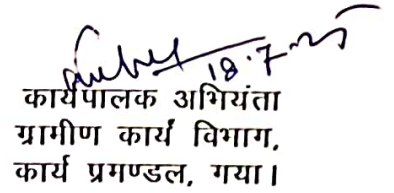 18.7.25
कार्यपालक अभियंता
ग्रामीण कार्य विभाग,
कार्य प्रमण्डल, गया।